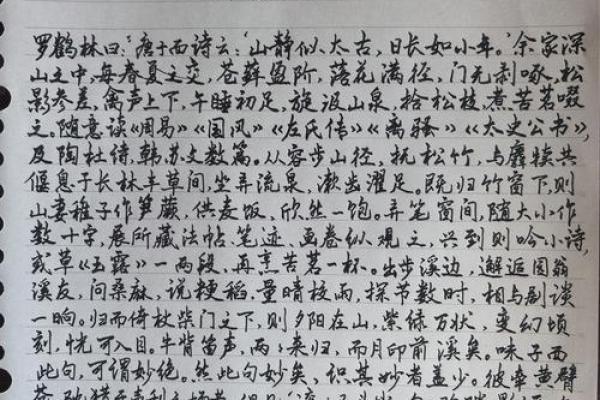 罗鹤林曰:“唐子西诗云:‘山静似太古,日长如小年。’余家深
山之中,每春夏之交,苍藓盈阶,落花满径,门无剥啄,松
影参差,禽声上下,午睡初足,旋汲山泉,拾松枝,煮苦茗啜
之。随意读《周易》《国风》《左氏传》《离骚》《太史公书》,
及陶杜诗、韩苏文数篇。从容步山径,抚松竹,与麛犊共
偃息于长林丰草间,坐弄流泉,漱齿濯足。既归竹窗下,则
山妻稚子作笋蕨,供麦饭,欣然一饱。弄笔窗间,随大小作
数十字,展所藏法帖、笔迹、画卷纵观之,兴到则吟小诗,
或草《玉露》一两段,再烹苦茗一杯。出步溪边,邂逅园翁
溪友,问桑麻,说粳稻,量晴校雨,探节数时,相与剧谈
一晌。归而倚杖柴门之下,则夕阳在山,紫绿万状,变幻顷
刻,恍可入目。牛背笛声,两两来归,而月印前溪矣。味子西
此句,可谓妙绝。然此句妙矣,识其妙者盖少。彼牵黄臂